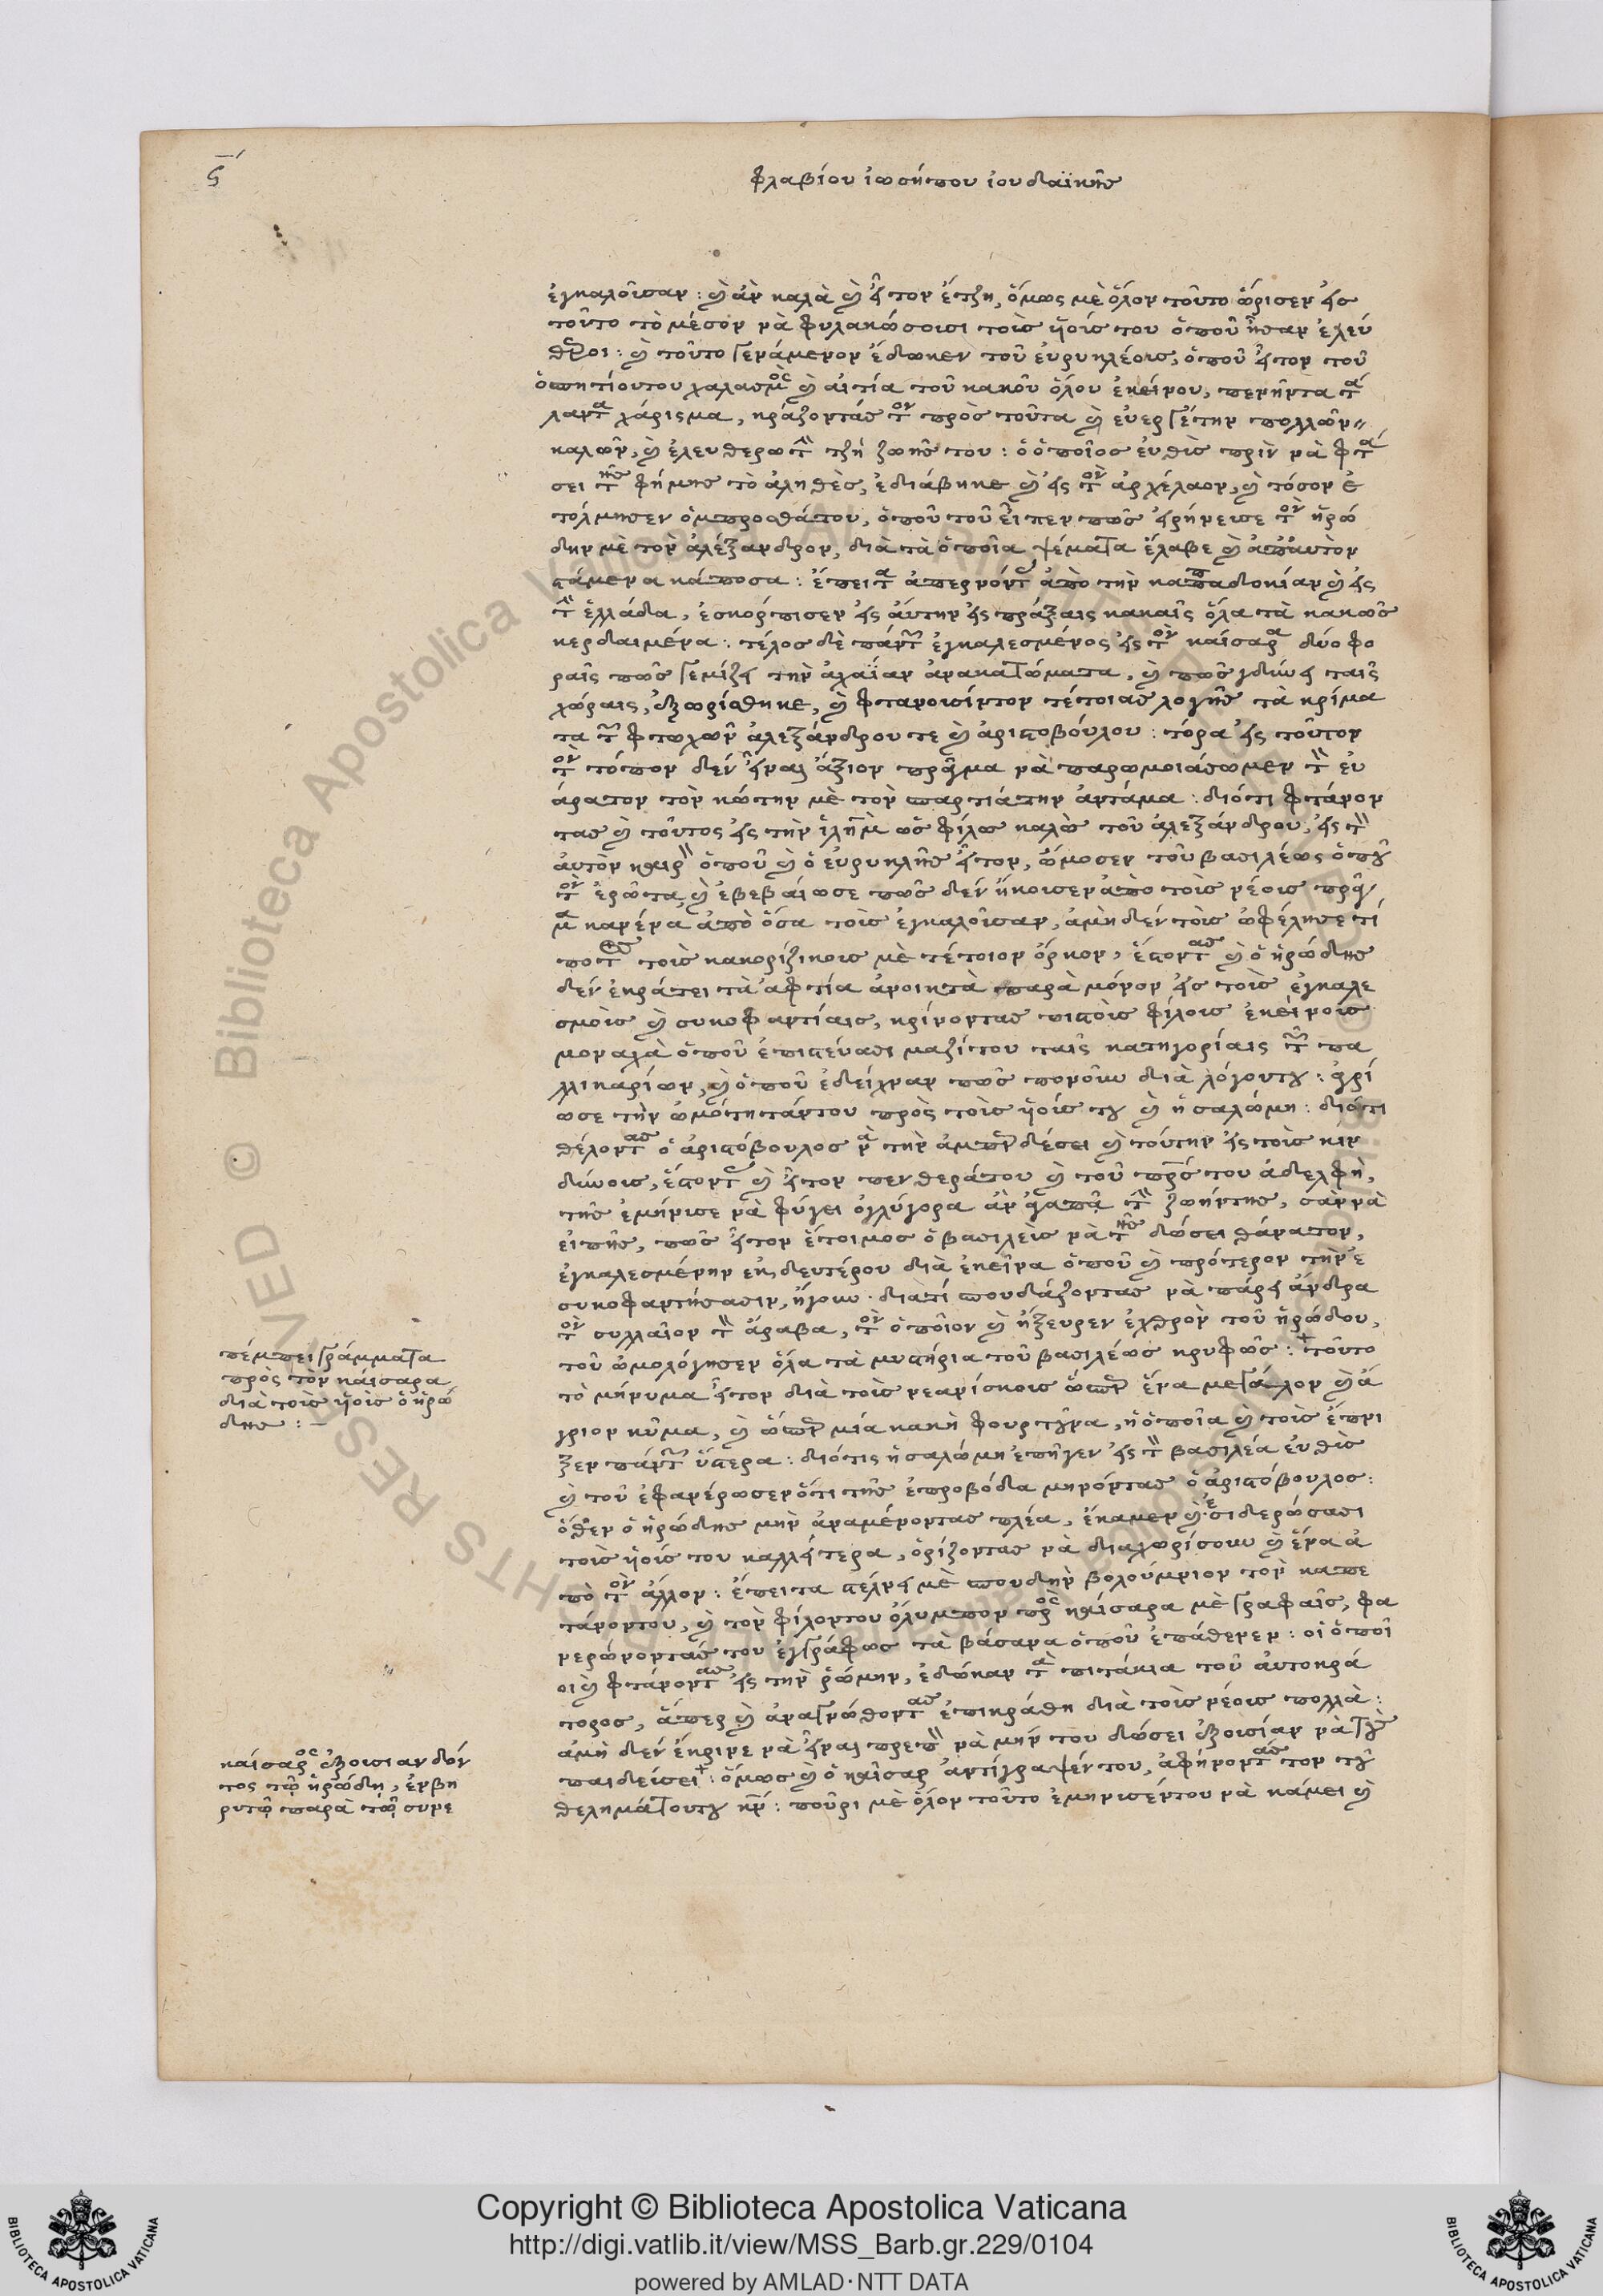 ϛ´
φλαβίου ἰωσήπου ἰουδαϊκῆς
ἐγκαλοῦσαν: καὶ ἂν καλὰ καὶ ἦτον ἔτζη, ὅμως μὲ ὅλον τοῦτο ὥρισεν εἰς
τοῦτο τὸ μέσον νὰ φυλακώσουσι τοὺς ὑούς του ὁποῦ ἦσαν ἐλεύ
θεροι: καὶ τοῦτο γενάμενον ἔδωκεν τοῦ εὐρυκλέους, ὁποῦ ἦτον τοῦ
ὁσπητίουτου χαλασμὸς καὶ αἰτία τοῦ κακοῦ ὅλου ἐκείνου, πενῆντα τά
λαντα χάρισμα, κράζοντάς τον πρὸς τοῦτα καὶ εὐεργέτην πολλῶν
καλῶν, καὶ ἐλευθερωτὴν τζῆ ζωῆς του: ὁ ὁποῖος εὐθὺς πρὶν νὰ φτά
σει τῆς φήμης τὸ ἀληθὲς, ἐδιάβηκε καὶ εἰς τὸν ἀρχέλαον, καὶ τόσον ἐ
τόλμησεν ὀμπροσθάτου, ὁποῦ τοῦ εἶπεν πῶς εἰρήνευσε τὸν ἡρώ
δην μὲ τὸν ἀλέξανδρον, διὰ τὰ ὁποῖα ψέματα ἔλαβε καὶ ἀπ' αὐτὸν
στάμενα κάποσα: ἔπειτα ἀπερνόντας ἀπὸ τὴν καππαδοκίαν καὶ εἰς
τὴν ἑλλάδα, ἐσκόρπισεν εἰς αὐτην εἰς πράξαις κακαῖς ὅλα τὰ κακῶς
κερδαιμένα: τέλος δὲ πάντων ἐγκαλεσμένος εἰς τὸν καίσαρα δύο φο
ραῖς πῶς γεμίζει τὴν ἀχαΐαν ἀνακατώματα, καὶ πῶς γδύνει ταῖς
χώραις, ἐξωρίσθηκε, καὶ φτανουσίντον τέτοιας λογῆς τὰ κρίμα
τα τῶν φτωχῶν ἀλεξάνδρου τε καὶ ἀριστοβούλου: τόρα εἰς τοῦτον
τὸν τόπον δὲν εἶναι ἄξιον πρᾶγμα νὰ παρωμοιάσωμεν τὸν εὐ
άρατον τὸν κώτην μὲ τὸν σπαρτιάτην ἀντάμα: διότι φτάνον
τας καὶ τοῦτος εἰς τὴν ἱλημ ὡς φίλος καλὸς τοῦ ἀλεξάνδρου, εἰς τὸν
αὐτὸν καιρὸν ὁποῦ καὶ ὁ εὐρυκλῆς ἦτον, ὤμοσεν τοῦ βασιλέως ὁποῦ
τὸν ἐρώτα, καὶ ἐβεβαίωσε πῶς δὲν ἤκουσεν ἀπὸ τοὺς νέους πρᾶγ
μα κανένα ἀπὸ ὅσα τοὺς ἐγκαλοῦσαν, ἀμὴ δὲν τοὺς ὠφέλησε τί
ποτες τοὺς κακορίζικους μὲ τέτοιον ὅρκον, ἔστοντας καὶ ὁ ἡρώδης
δὲν ἐκράτει τὰ ἀφτία ἀνοικτὰ παρὰ μόνον εἰς τοὺς ἐγκαλε
σμοὺς καὶ συκοφαντίαις, κρίνοντας πιστοὺς φίλους ἐκείνους
μοναχὰ ὁποῦ ἐπιστεύασι μαζίτου ταῖς κατηγορίαις τῶν πα
λλικαρίων, καὶ ὁποῦ ἐδείχναν πῶς πονοῦν διὰ λόγουτου: ἀγρί
ωσε τὴν ὠμότητάντου πρὸς τοὺς ὑούς του καὶ ἡ σαλώμη: διότι
θέλοντας ὁ ἀριστόβουλος νὰ τὴν ἀμποδέσει καὶ τούτην εἰς τοὺς κιν
δύνους, ἔστοντας καὶ ἦτον πενθεράτου καὶ τοῦ πατρός του ἀδελφὴ,
τῆς ἐμήνυσε νὰ φύγει ὀγλύγορα ἂν ἀγαπᾶ τὴν ζωήντης, σὰν νὰ
εἰπῆς, πῶς ἦτον ἕτοιμος ὁ βασιλεὺς νὰ τῆς δώσει θάνατον,
ἐγκαλεσμένην ἐκ δευτέρου διὰ ἐκεῖνα ὁποῦ καὶ πρότερον τὴν ἐ
συκοφαντήσασιν, ἤγουν διατί σπουδάζοντας νὰ πάρει ἄνδρα
τὸν συλλαῖον τὸν ἄραβα, τὸν ὁποῖον καὶ ἤξευρεν ἐχθρὸν τοῦ ἡρώδου,
τοῦ ὡμολόγησεν ὅλα τὰ μυστήρια τοῦ βασιλέως κρυφῶς: τοῦτο
τὸ μήνυμα ἦτον διὰ τοὺς νεανίσκους ὥσπερ ἕνα μεγάλον καὶ ἄ
γριον κῦμα, καὶ ὥσπερ μία κακὴ φουρτοῦνα, ἡ ὁποῖα καὶ τοὺς ἔπνι
ξεν πάντων ὕστερα: διότις ἡ σαλώμη ἐπῆγεν εἰς τὸν βασιλέα εὐθὺς
καὶ τοῦ ἐφανέρωσεν ὅτι τῆς ἐπροβόδα μηνόντας ὁ ἀριστόβουλος:
ὅθεν ὁ ἡρώδης μὴν ἀναμένοντας πλέα, ἔκαμεν καὶ ἐσιδερώσασι
τοὺς ὑούς του καλλίτερα, ὁρίζοντας νὰ διαχωρίσουν καὶ ἕνα ἀ
πὸ τὸν ἄλλον: ἔπειτα στέλνει μὲ σπουδὴν βολούμνιον τὸν καπε
τάνοντου, καὶ τὸν φίλοντου ὀλυμπον πρὸς καίσαρα μὲ γραφαῖς, φα
νερώνοντάς του ἐγγράφως τὰ βάσανα ὁποῦ ἐπάθενεν: οἱ ὁποῖ
οι καὶ φτάνοντας εἰς τὴν ῥώμην, ἐδώκαν τὰ πιτάκια τοῦ αὐτοκρά
τορος, ἅπερ καὶ ἀναγνώθοντας ἐπικράθη διὰ τοὺς νέους πολλὰ:
ἀμὴ δὲν ἔκρινε νὰ εἶναι πρεπὸν νὰ μήν του δώσει ἐξουσίαν νὰ τοὺς
παιδεύσει: ὅμως καὶ ὁ καῖσαρ ἀντίγραψέν του, ἀφήνοντας τον τοῦ
θελημάτουτου κύριον: ποῦρι μὲ ὅλον τοῦτο ἐμηνυσέντου νὰ κάμει καὶ
πέμπει γράμματα
πρὸς τὸν καίσαρα
διὰ τοὺς ὑοὺς ὁ ἡρώ
δης:
καίσαρος ἐξουσιαν δόν
τος τῷ ἡρώδῃ, ἐν βη
ρυτῷ παρὰ τῷ συνε
Copyright © Biblioteca Apostolica Vaticana
http://digi.vatlib.it/view/MSS_Barb.gr.229/0104
powered by AMLAD·NTT DATA
BIBLIOTECA APOSTOLICA VATICANA
BIBLIOTECA APOSTOLICA VATICANA